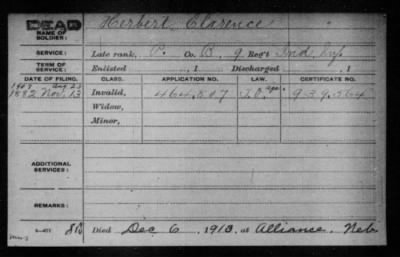 DEAD Herbert, Clarence
NAME OF
SOLDIER:
SERVICE: Late rank, P. Co. B, 9 Reg't Ind. Inf.
TERM OF
SERVICE: Enlisted , 1 Discharged , 1
DATE OF FILING. CLASS. APPLICATION NO. LAW. CERTIFICATE NO.
1907 Aug 23
1882 Nov. 13 Invalid, 464.507 939.564
Widow,
Minor,
ADDITIONAL
SERVICES:
REMARKS:
Died Dec 6, 1913, at Alliance, Neb